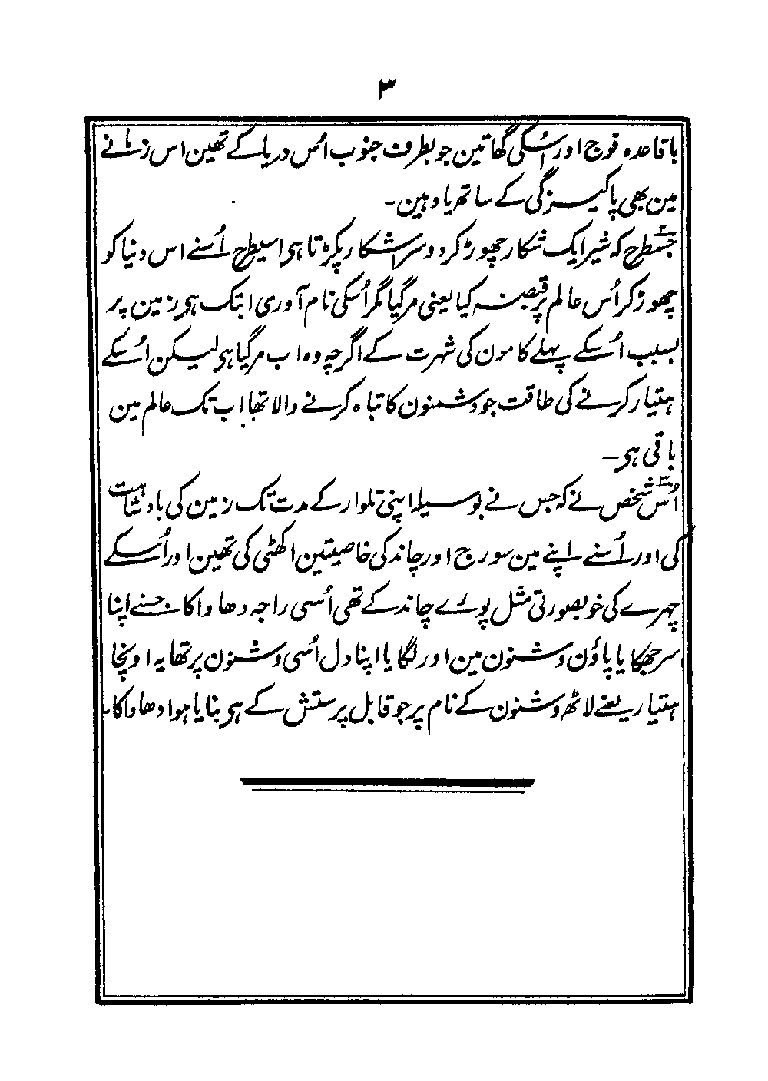 ۳
باقاعدہ فوج اور اُسکی گھاتین جو بطرف جنوب اُس دریا کے تھین اس زمانے
مین بھی پاکیزگی کے ساتھ یاد ہین۔
جسطرح کہ شیر ایک شکار چھوڑ کر دوسرا شکار پکڑتا ہی اسیطرح اُسنے اس دنیا کو
چھوڑ کر اُس عالم پر قبضہ کیا یعنی مر گیا مگر اُسکی نام آوری ابتک ہی زمین پر
بسبب اُسکے پہلے کامون کی شہرت کے اگرچہ وہ اب مر گیا ہی لیکن اُسکے
ہتیار کرنے کی طاقت جو دشمنون کا تباہ کرنے والا تھا اب تک عالم مین
باقی ہی۔
اُس شخص نے کہ جس نے بوسیلہ اپنی تلوار کے مدت تک زمین کی بادشاہت
کی اور اُسنے اپنے مین سورج اور چاند کی خاصیتین اکھٹی کی تھین اور اُسکے
چہرے کی خوبصورتی مثل پورے چاند کے تھی اُسی راجہ دھاوا کا جسنے اپنا
سر جھکایا پاؤن وشنون مین اور لگایا اپنا دل اُسی وشنون پر تھا یہ اونچا
ہتیار یعنے لاٹھ وشنون کے نام پر جو قابل پرستش کے ہی بنایا ہوا دھاوا کا۔